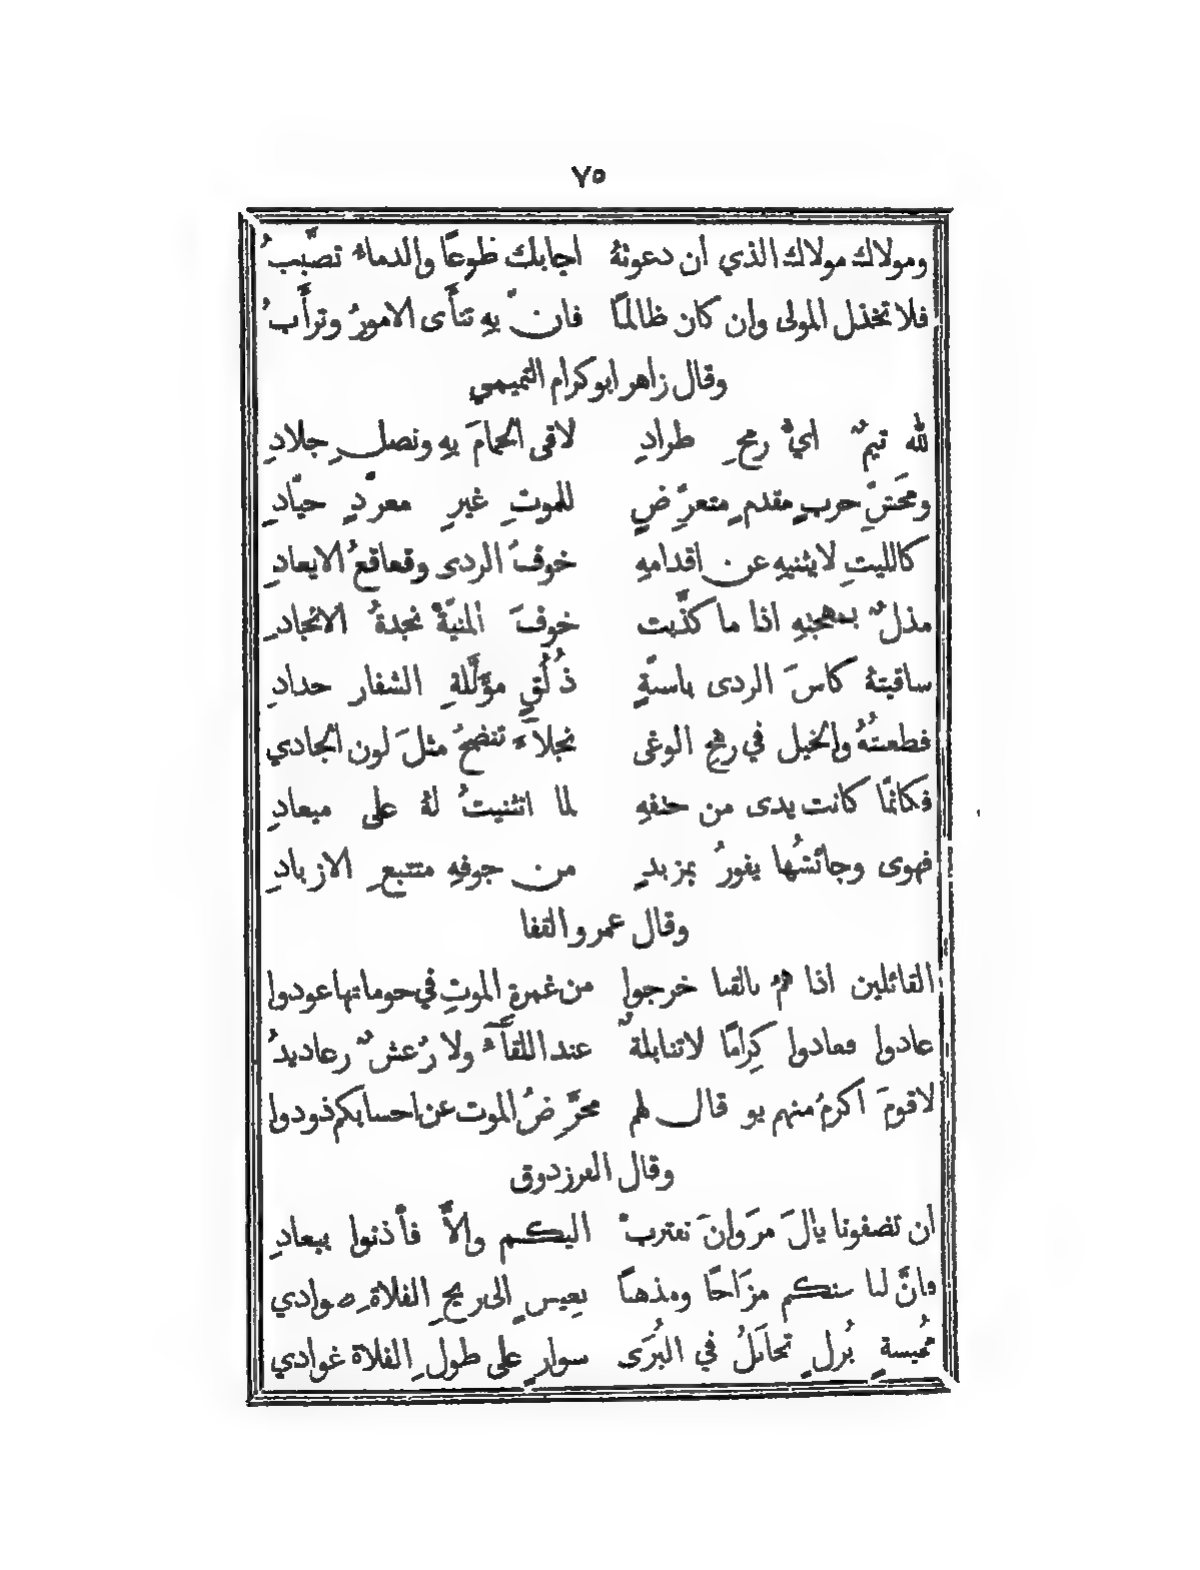 ٧٥
ومولاك مولاك الذي ان دعوتهُ اجابك طوعًا والدماءُ تصبَّبُ
فلا تخذل المولى وان كان ظالمًا فانّ بهِ تثأَى الامورُ وترأَبُ
وقال زاهر ابو كرام التميمي
لله تيمٌ ايُّ رمحِ طرادِ لاقى الحمامَ بهِ ونصلِ جلادِ
ومحَشِّ حربٍ مقدمٍ متعرِّضٍ للموتِ غيرِ معرّدٍ حيّادِ
كالليثِ لا يثنيهِ عن اقدامهِ خوفُ الردى وقعاقعُ الايعادِ
مذلٌ بمهجتهِ اذا ما كذَّبت خوفَ المنيّةُ نجدةُ الانجادِ
ساقيتهُ كاسَ الردى باسنّةٍ ذُلُقٍ مؤَلَّلةِ الشفار حدادِ
فطعنتُهُ والخيل في رهجِ الوغى نجلآءَ تنضحُ مثلَ لون الجادي
فكانمّا كانت يدى من حتفهِ لما انثنيتُ لهُ على ميعادِ
فهوى وجائشُها يفورُ بمزبدٍ من جوفهِ متتبعِ الازبادِ
وقال عمرو القنا
القائلين اذا همُ بالقنا خرجوا من غمرةِ الموتِ في حوماتها عودوا
عادوا فعادوا كِرامًا لا تنابلةٌ عند اللقآءِ ولا رُعشٌ رعاديدُ
لا قومَ اكرمُ منهم يو قال لهم محرِّضُ الموت عن احسابكم ذودوا
وقال الفرزدوق
ان تنصفونا يالَ مرَوانَ نقتربْ اليكم والاَّ فأذنوا ببعادِ
فانَّ لنا عنكم مزَاحًا ومذهبًا بعيسٍ الى ريحِ الفلاةِ صوادي
مُخيسةٍ بُزلٍ تخايَلُ في البُرَى سوارٍ على طولِ الفلاة غوادي